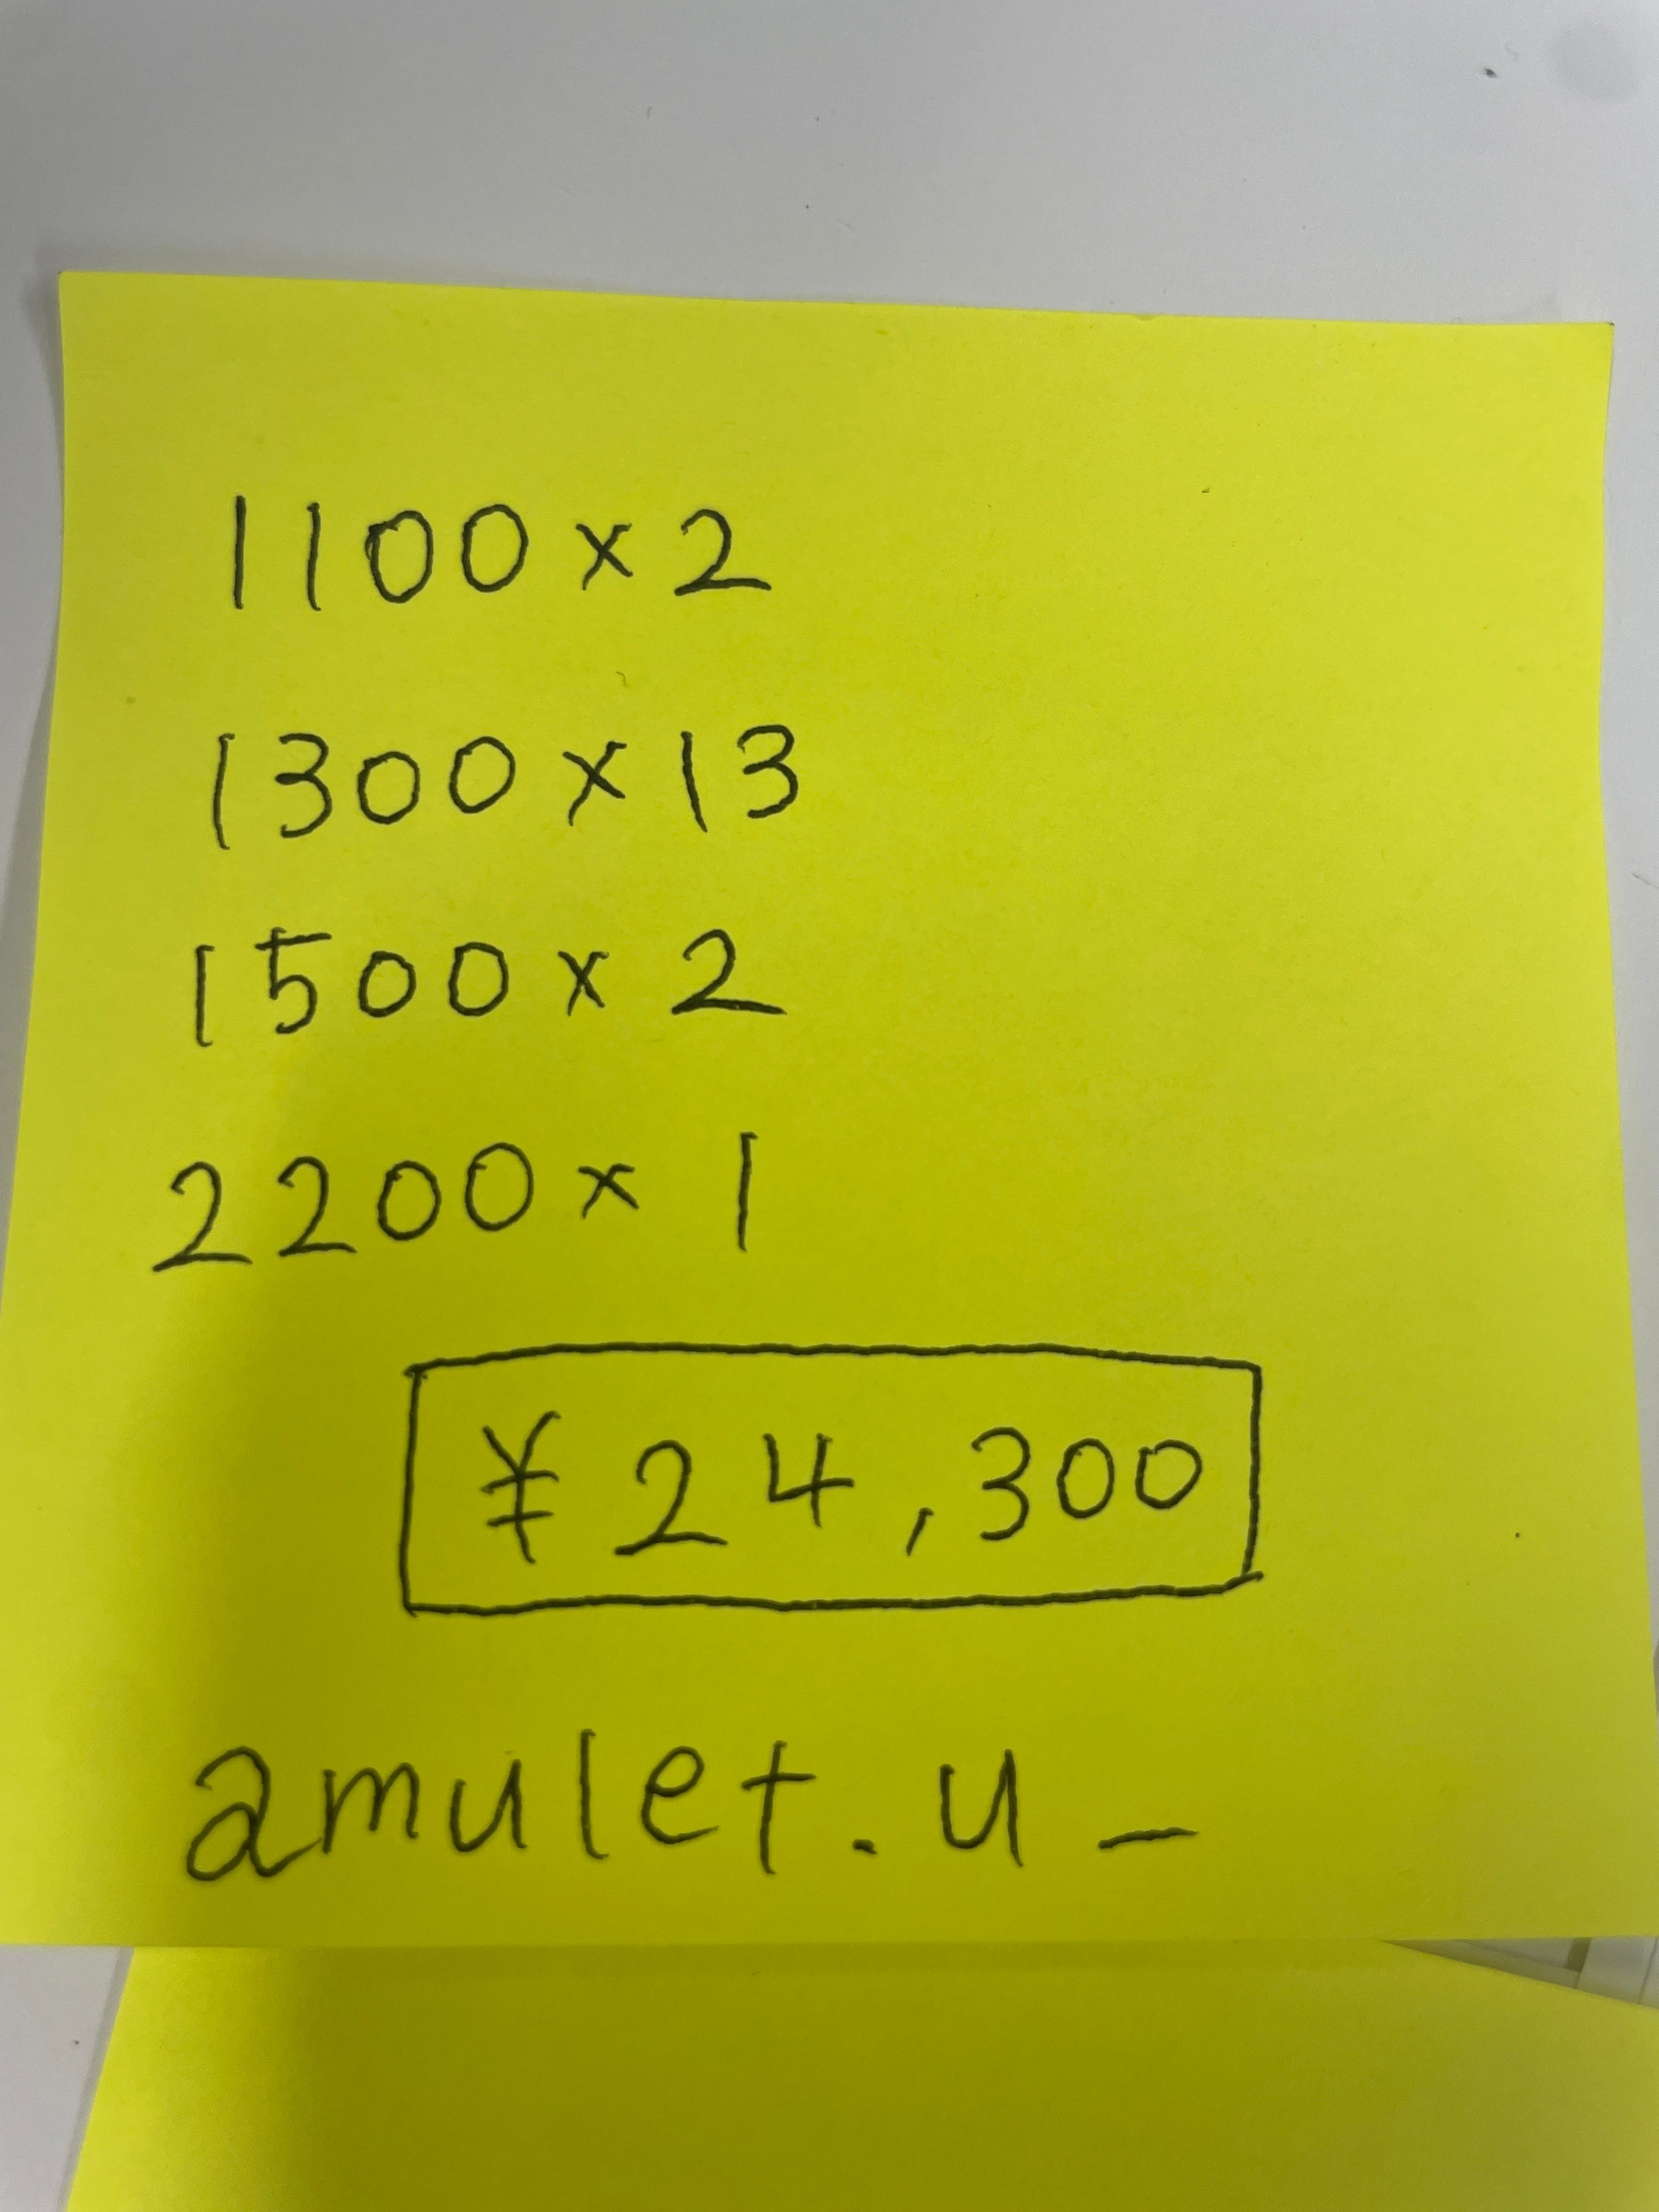 1100×2
1300×13
1500×2
2200×1
¥24,300
amulet.u_